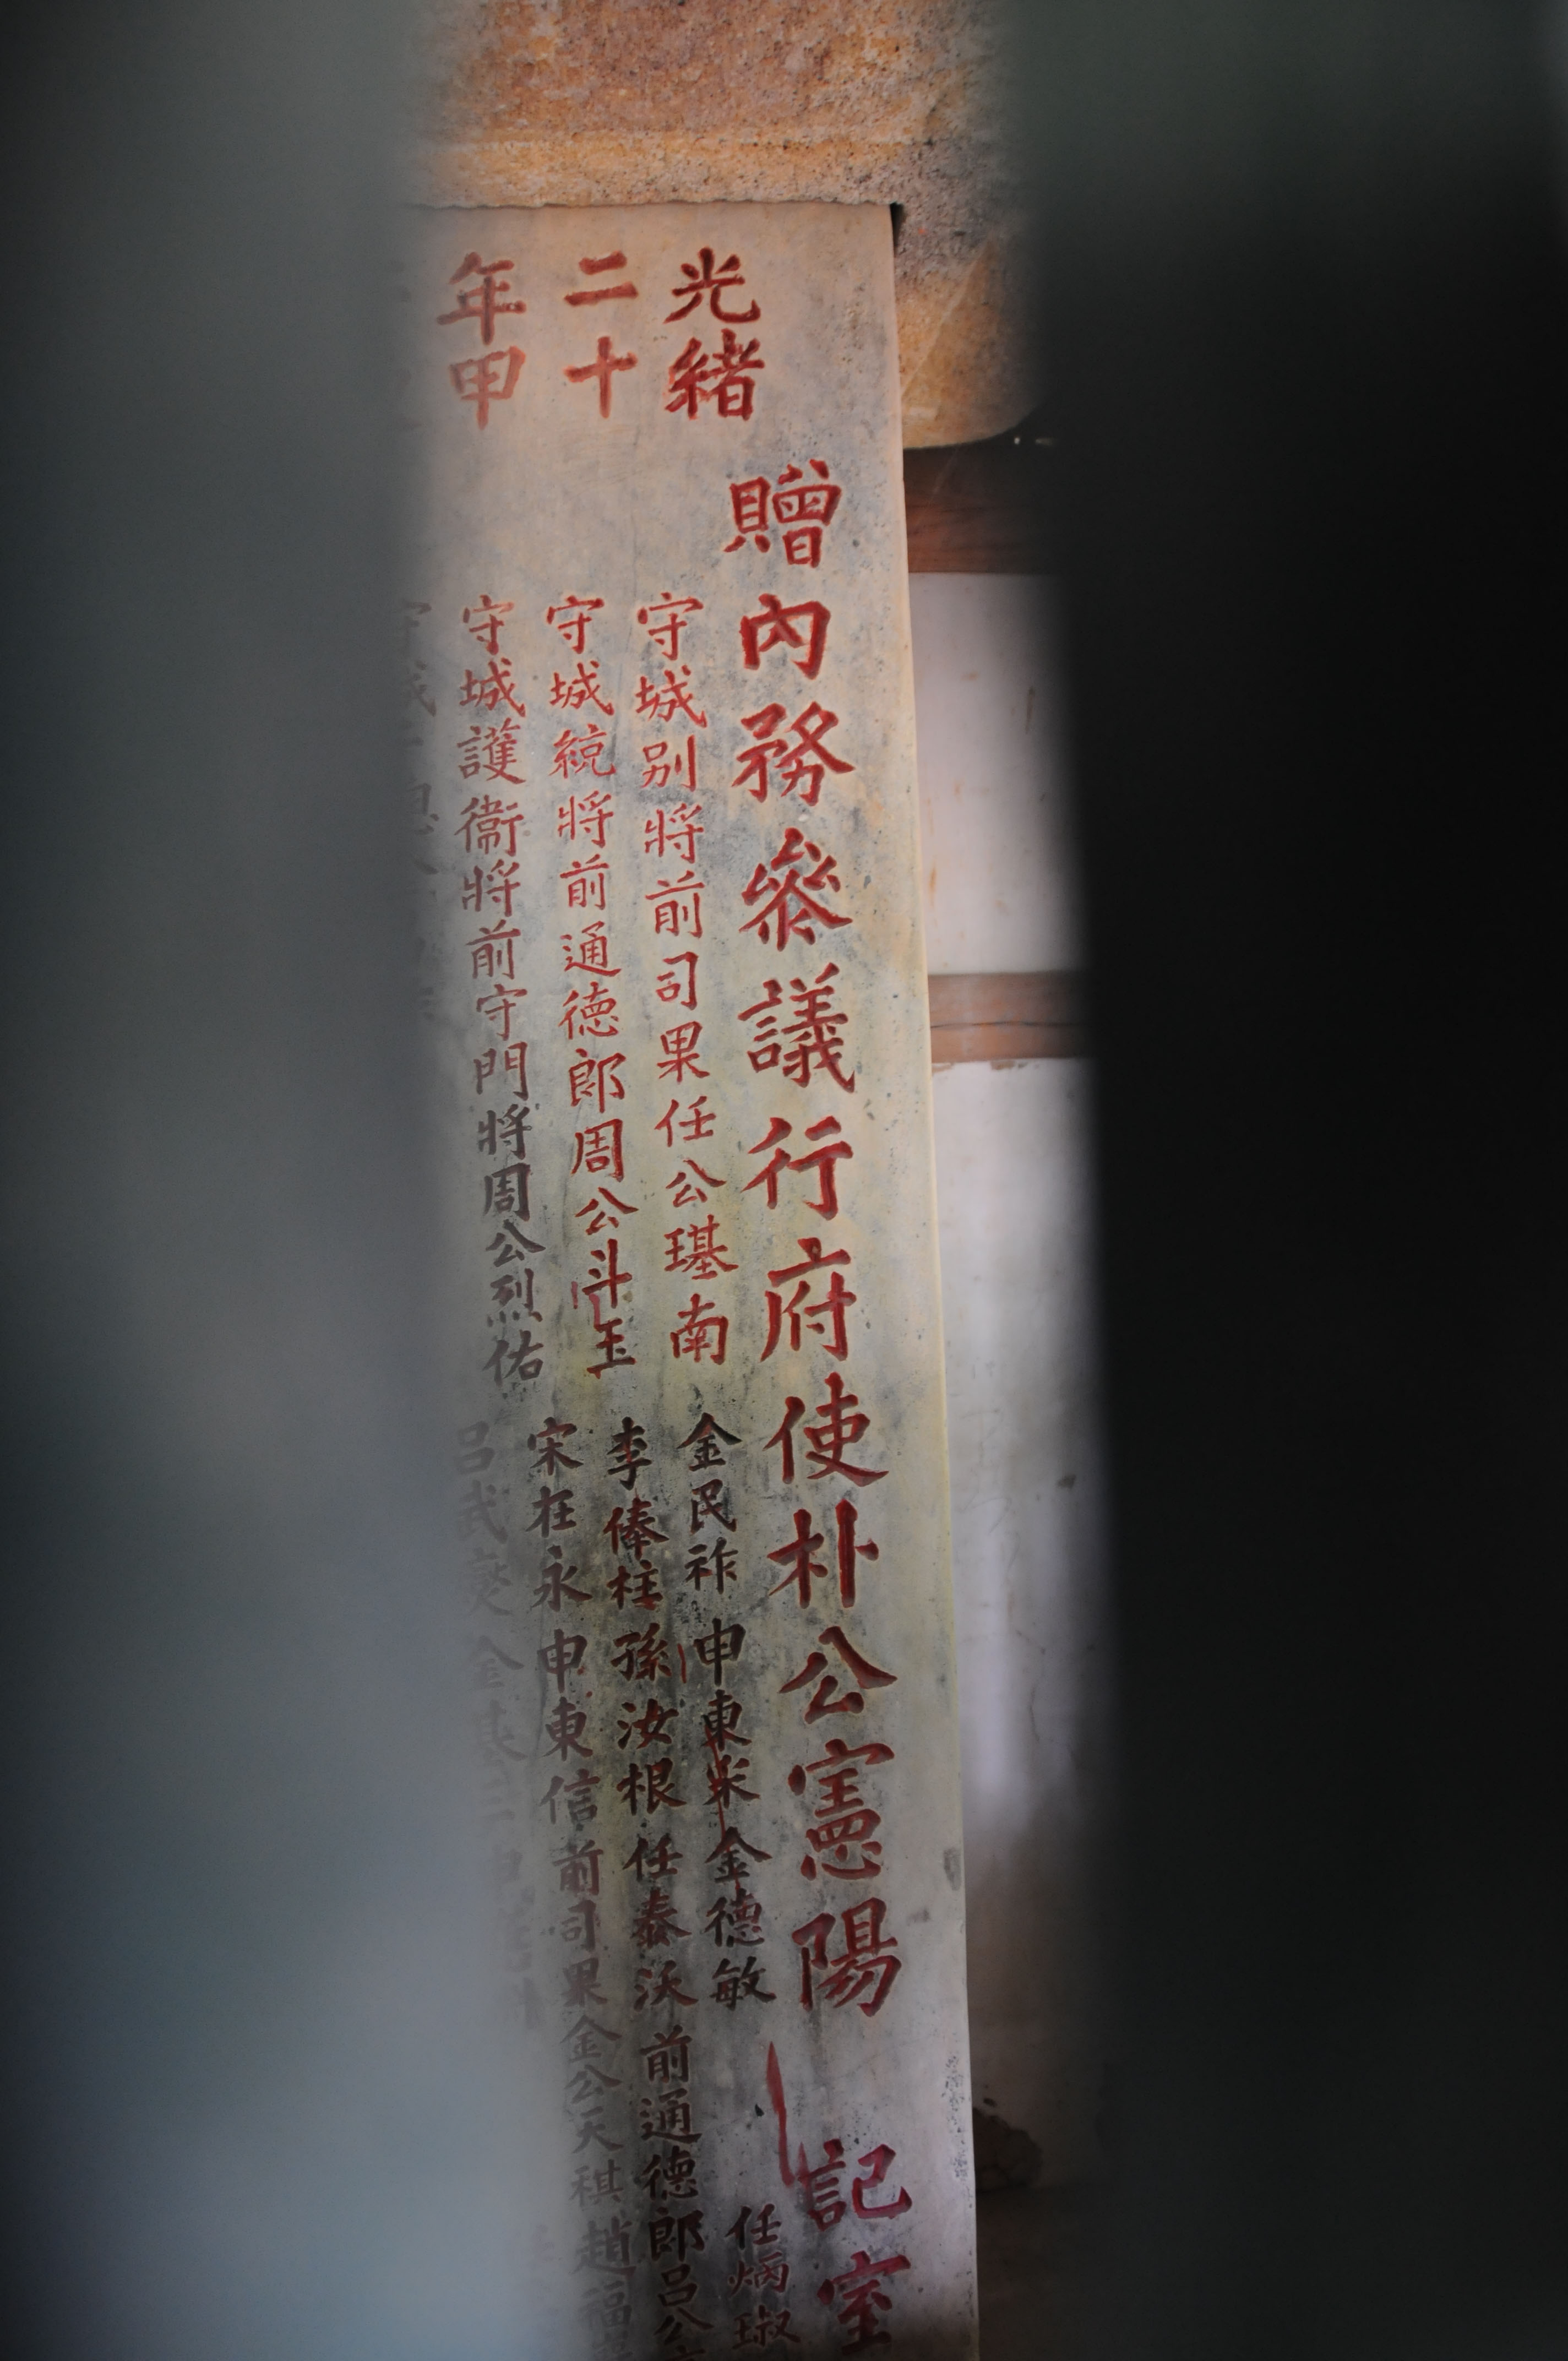 贈內務參議行府使朴公憲陽 記室
光緖
守城别將前司果任公璂南
金民祚 申東 金德敏
任炳淑
二十
守城統將前通德郎周公斗玉
李俸柱 孫汝根 任泰沃 前通德郎呂公
年甲
守城護衛將前守門將周公烈佑
宋在永 申東信 前司果金公天祺 趙福